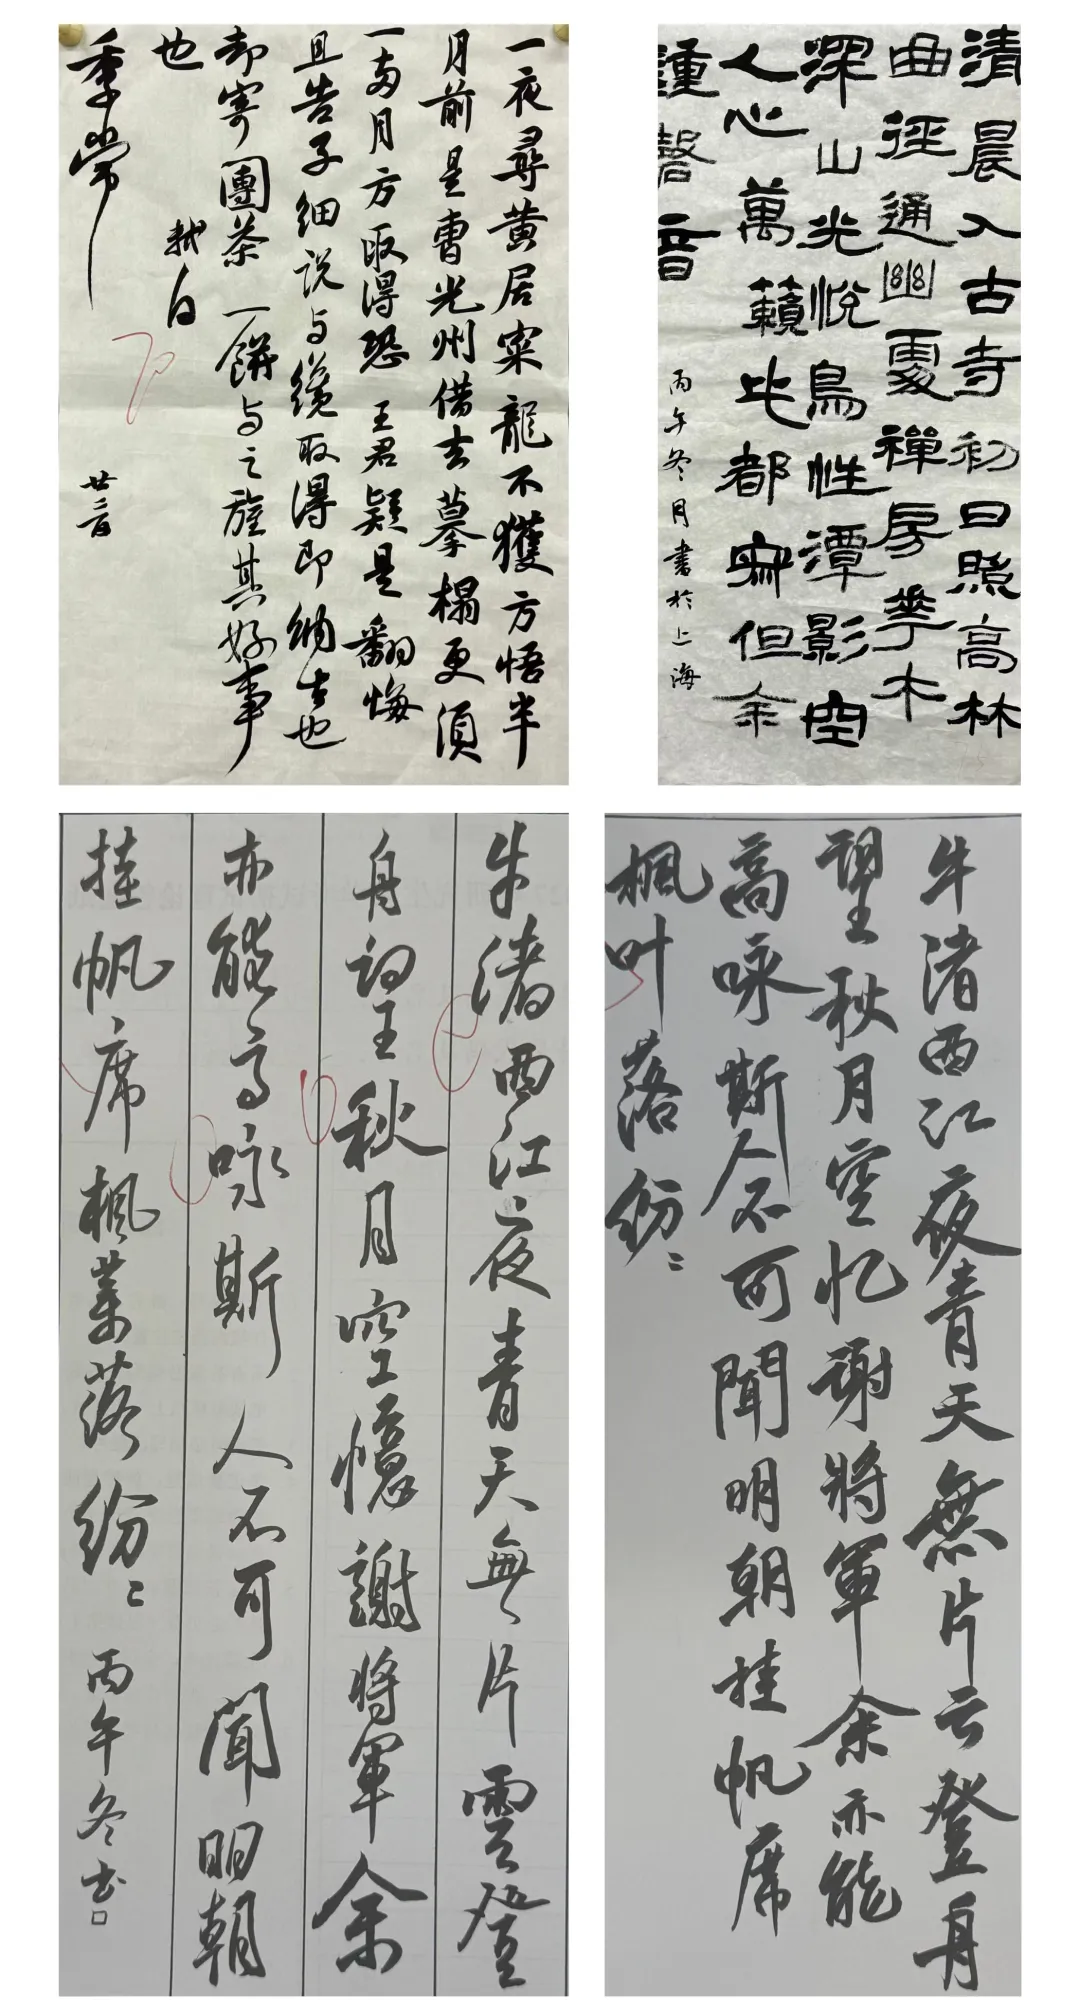 一夜尋黄居寀龍不獲方悟半
月前是曹光州借去摹榻更須
一兩月方取得恐王君疑是翻悔
且告子細説与纔取得即納去也
却寄團茶一餅与之旌其好事
也 軾白
季常 廿三日
清晨入古寺初日照高林
曲徑通幽處禪房花木
深山光悦鳥性潭影空
人心萬籟此都寂但余
鍾磬音 丙午冬月書於上海
牛渚西江夜青天無片雲登
舟望秋月空憶謝將軍余
亦能高咏斯人不可聞明朝
挂帆席楓葉落紛〻 丙午冬书
牛渚西江夜青天無片云登舟
望秋月空忆谢將軍余亦能
高咏斯人不可聞明朝挂帆席
楓叶落紛〻